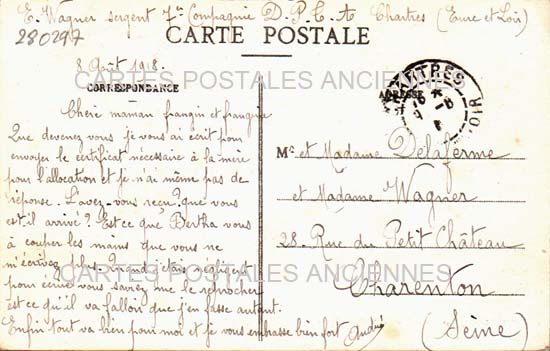 E. Wagner sergent 7me Compagnie D.P.C.A Chartres (Eure et Loir)
280297
CARTE POSTALE
8 Août 1918.
CARTES POSTALES ANCIENNES
CORRESPONDANCE
ADRESSE
CHARTRES
Chère maman frangin et frangine
Que devenez vous je vous ai écrit pour
envoyer le certificat nécessaire à la mère
pour l'allocation et je n'ai même pas de
réponse. L'avez-vous reçu? que vous
est-il arrivé? Est ce que Bertha vous
à couper les mains que vous ne
m'écrivez plus. Quand j'étais négligent
pour écrire vous savez me le reprocher
est ce qu'il va falloir que j'en fasse autant.
Enfin tout va bien pour moi et je vous embrasse bien fort
Mr et Madame Delaferme
et Madame Wagner
28 Rue du Petit Château
CARTES POSTALES ANCIENNES
Charenton
(Seine)